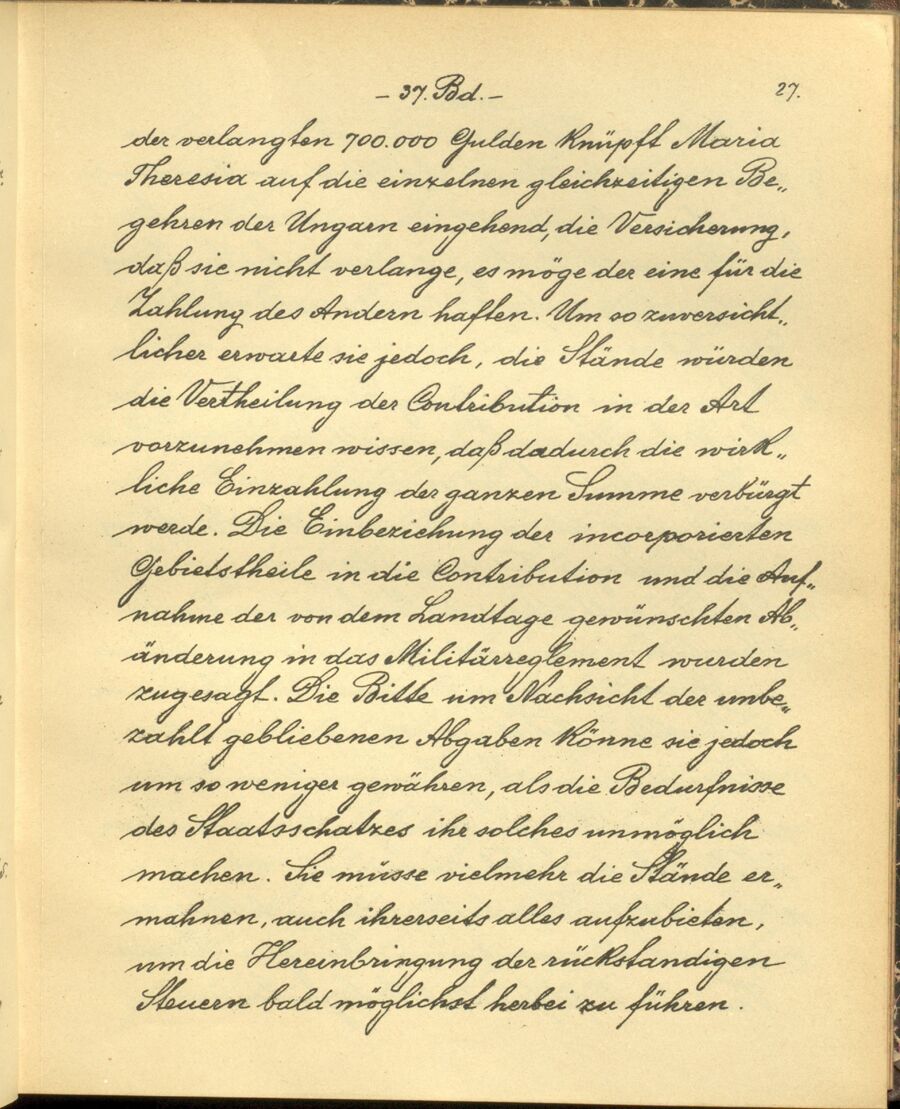 – 37. Bd. –
27.
der verlangten 700.000 Gulden knüpft Maria
Theresia auf die einzelnen gleichzeitigen Be„
gehren der Ungarn eingehend, die Versicherung,
daß sie nicht verlange, es möge der eine für die
Zahlung des Andern haften. Um so zuversicht„
licher erwarte sie jedoch, die Stände würden
die Vertheilung der Contribution in der Art
vorzunehmen wissen, daß dadurch die wirk„
liche Einzahlung der ganzen Summe verbürgt
werde. Die Einbeziehung der incorporierten
Gebietstheile in die Contribution und die Auf„
nahme der von dem Landtage gewünschten Ab„
änderung in das Militärreglement wurden
zugesagt. Die Bitte um Nachsicht der unbe„
zahlt gebliebenen Abgaben könne sie jedoch
um so weniger gewähren, als die Bedurfnisse
des Staatsschatzes ihr solches unmöglich
machen. Sie müsse vielmehr die Stände er„
mahnen, auch ihrerseits alles aufzubieten,
um die Hereinbringung der rückstandigen
Steuern bald möglichst herbei zu führen.